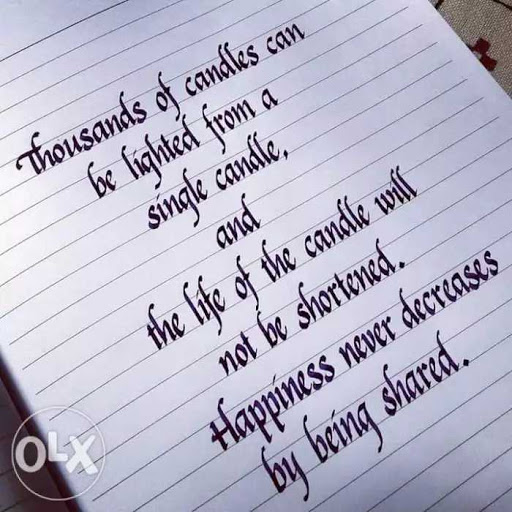 Thousands of candles can
be lighted from a
single candle,
and
the life of the candle will
not be shortened.
Happiness never decreases
by being shared.
OLX